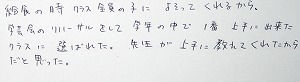 給食の時クラス全員の手によそってくれるから。
学芸会のリハーサルをして学年の中で1番上手に出来た
クラスに選ばれた。先生が上手に教えてくれたから
だと思った。